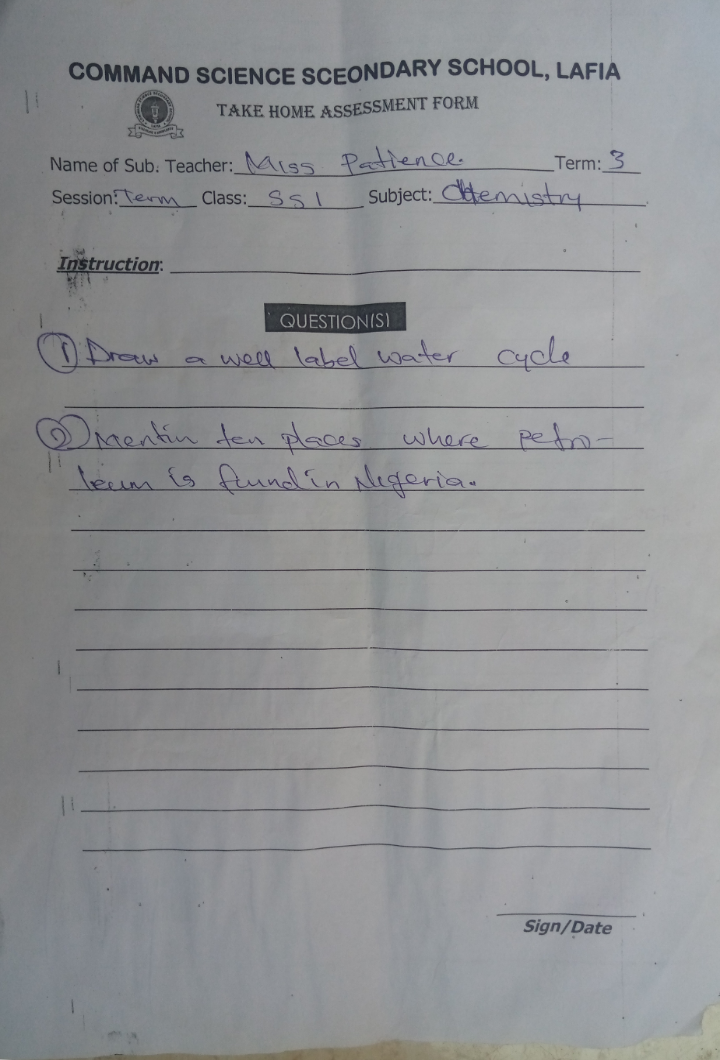 COMMAND SCIENCE SCEONDARY SCHOOL, LAFIA
TAKE HOME ASSESSMENT FORM
Name of Sub. Teacher: Miss Patience. Term: 3
Session: Term Class: SS1 Subject: Chemistry
Instruction:
QUESTION(S)
① Draw a well label water cycle
② Mentin ten places where petro-
leum is found in Nigeria.
Sign/Date